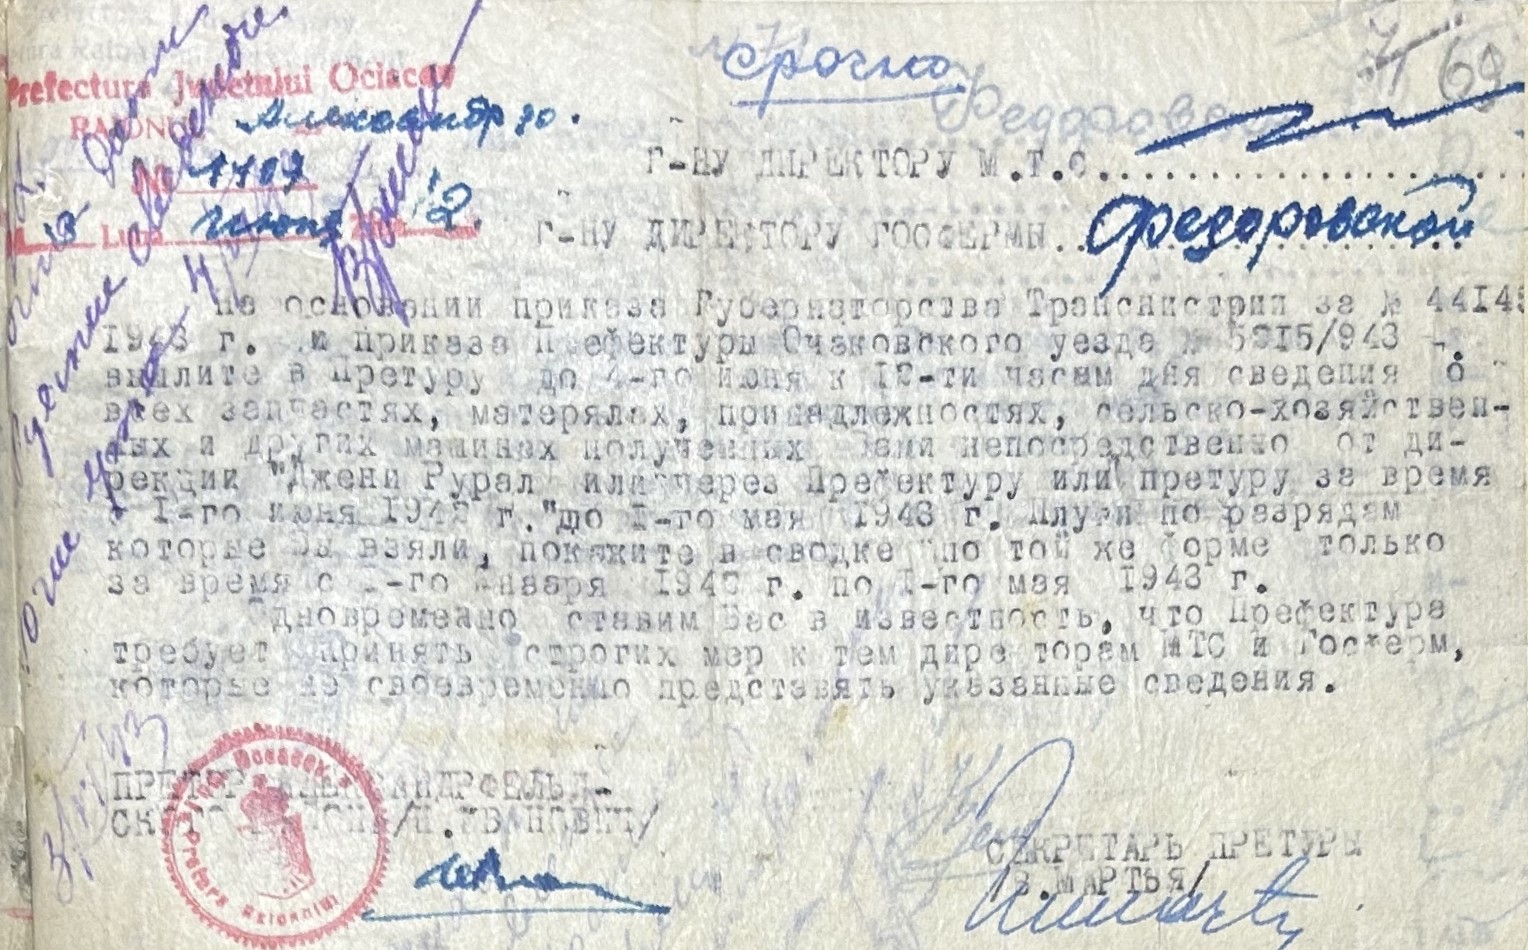 Срочно
69
Prefectura Judetului Ociacov
RAIONUL Александр
№ 1709
Luna июня
Г-НУ ДИРЕКТОРУ М.Т.С.
Г-НУ ДИРЕКТОРУ ГОСФЕРМЫ Федоровской
На основании приказа Губернаторства Транснистрии за № 44145
1943 г. и приказа Префектуры Очаковского уезда № 5915/943 г.
вышлите в Претуру до 4-го июня к 12-ти часам дня сведения о
всех запчастях, матерялах, принадлежностях, сельско-хозяйствен-
ных и других машинах полученных Вами непосредственно от ди-
рекции "Джени Рурал или через Префектуру или претуру за время
с I-го июня 1942 г. до I-го мая 1943 г. Плуги по разрядам
которые Вы взяли, покажите в сводке по той же форме только
за время с I-го января 1943 г. по I-го мая 1943 г.
Одновремеано ставим Вас в известность, что Префектура
требует принять строгих мер к тем дире торам МТС и Госферм,
которые не своевременно представять указанные сведения.
ПРЕТОР АЛЕКСАНДРФЕЛЬД-
СКОГО РАЙОНА/П.ИВАНОВИЧ/
СЕКРЕТАРЬ ПРЕТУРЫ
/В.МАРТЬЯ/
Pretura Raionului